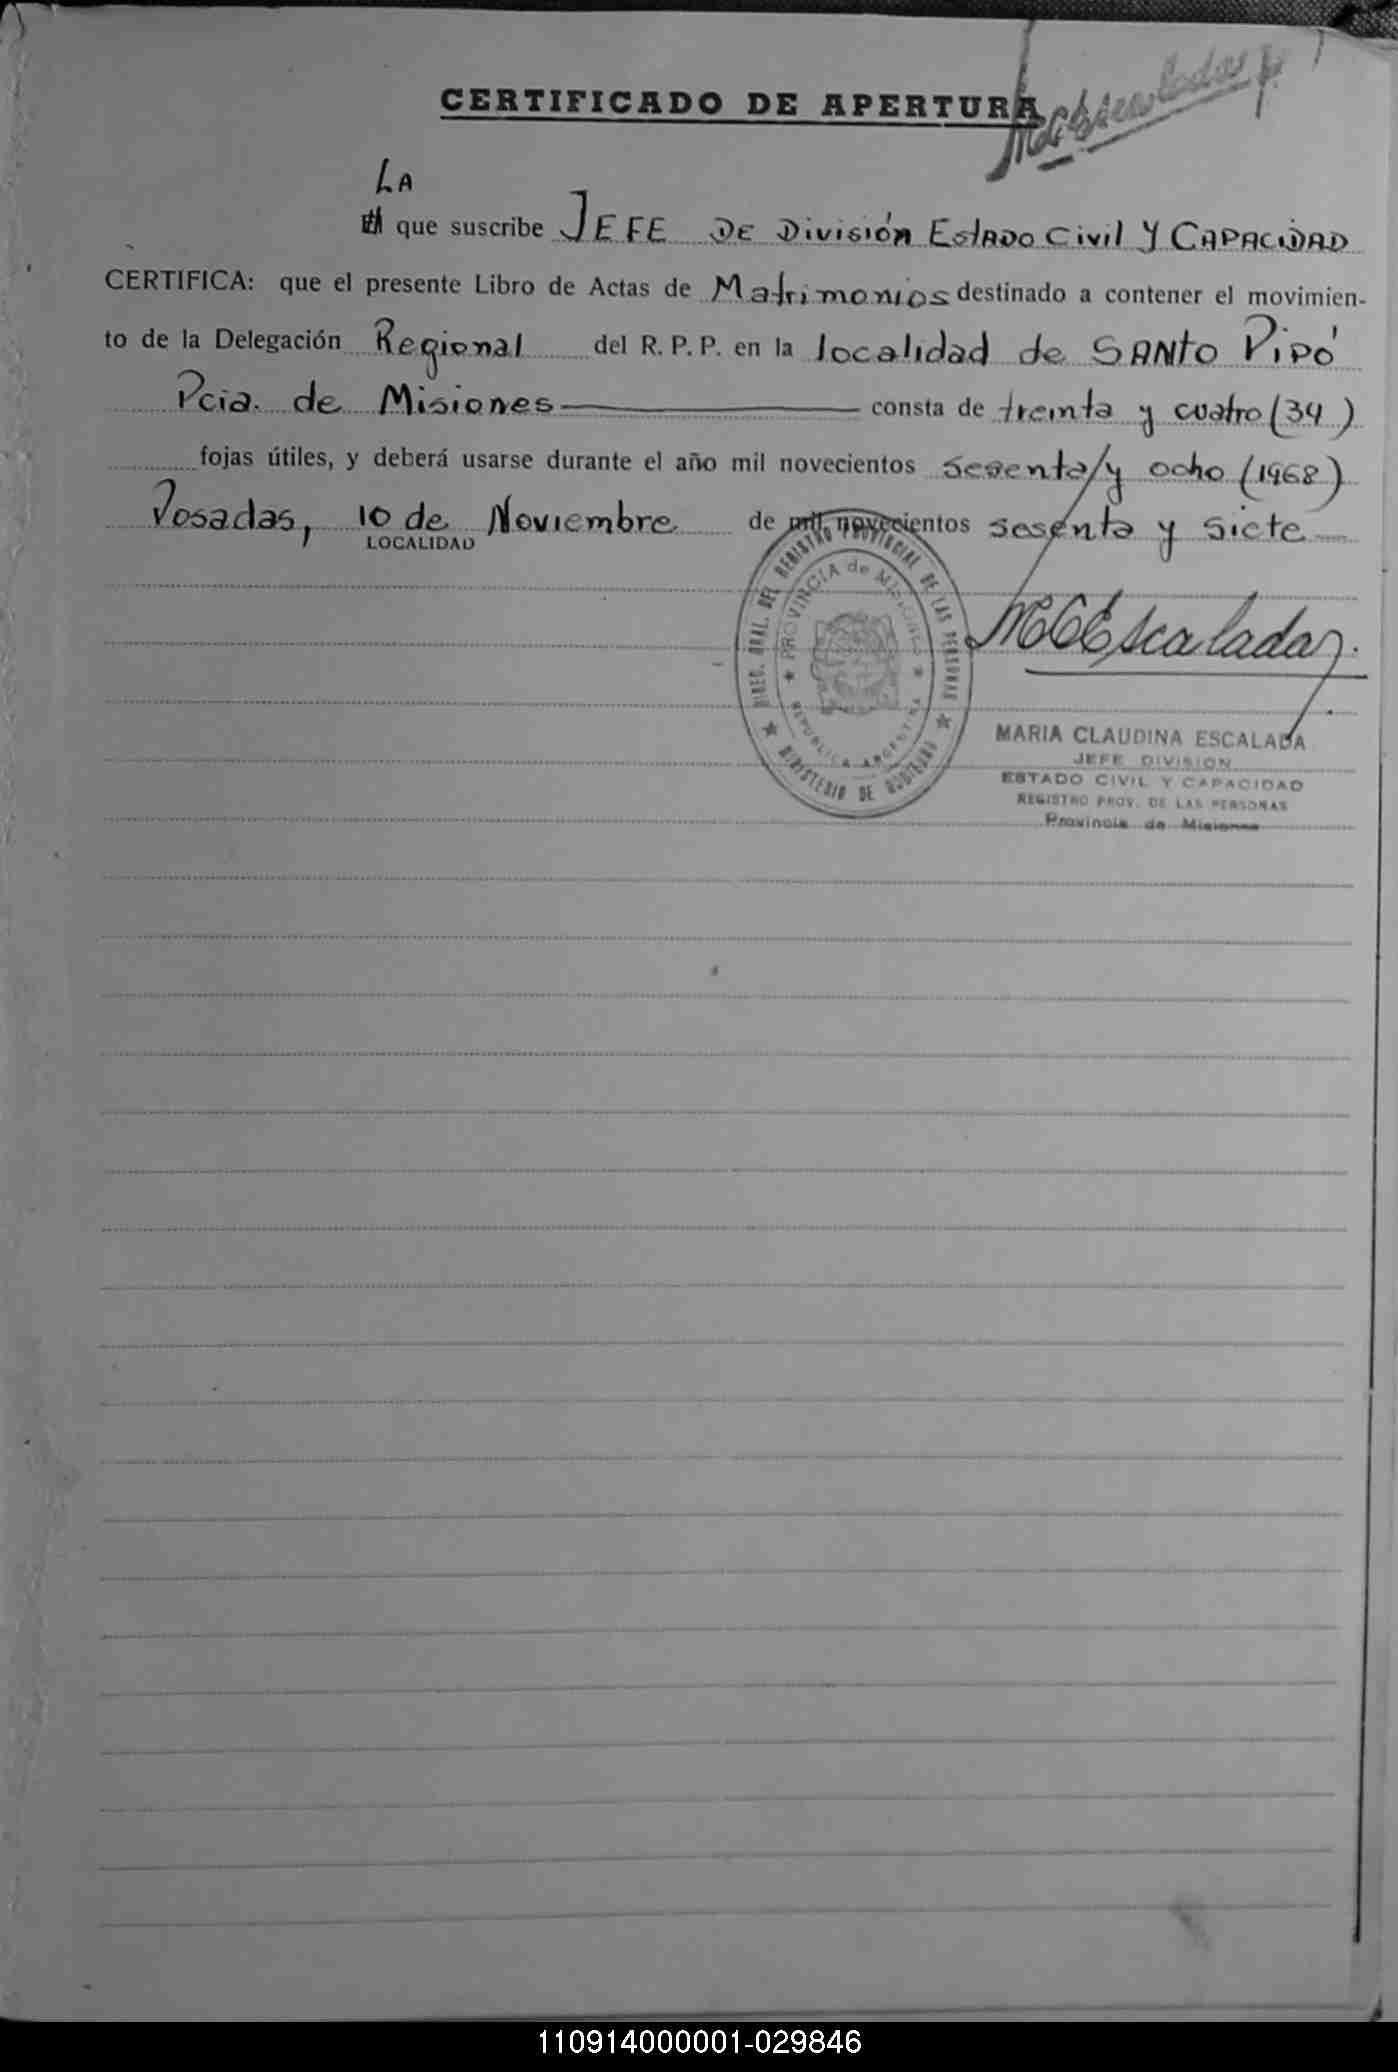 CERTIFICADO DE APERTURA
LA
que suscribe JEFE DE División Estado Civil Y CAPACIDAD
CERTIFICA: que el presente Libro de Actas de Matrimonios destinado a contener el movimien-
to de la Delegación Regional del R. P. P. en la localidad de SANTO PIPÓ
Pcia. de Misiones consta de treinta y cuatro (34)
fojas útiles, y deberá usarse durante el año mil novecientos sesenta y ocho (1968)
Posadas, 10 de Noviembre de mil novecientos sesenta y siete
LOCALIDAD
DIREC. GRAL. DEL REGISTRO PROVINCIAL DE LAS PERSONAS
PROVINCIA de MISIONES
REPUBLICA ARGENTINA
MINISTERIO DE GOBIERNO
MCEscalada
MARIA CLAUDINA ESCALADA
JEFE DIVISION
ESTADO CIVIL Y CAPACIDAD
REGISTRO PROV. DE LAS PERSONAS
Provincia de Misiones
110914000001-029846